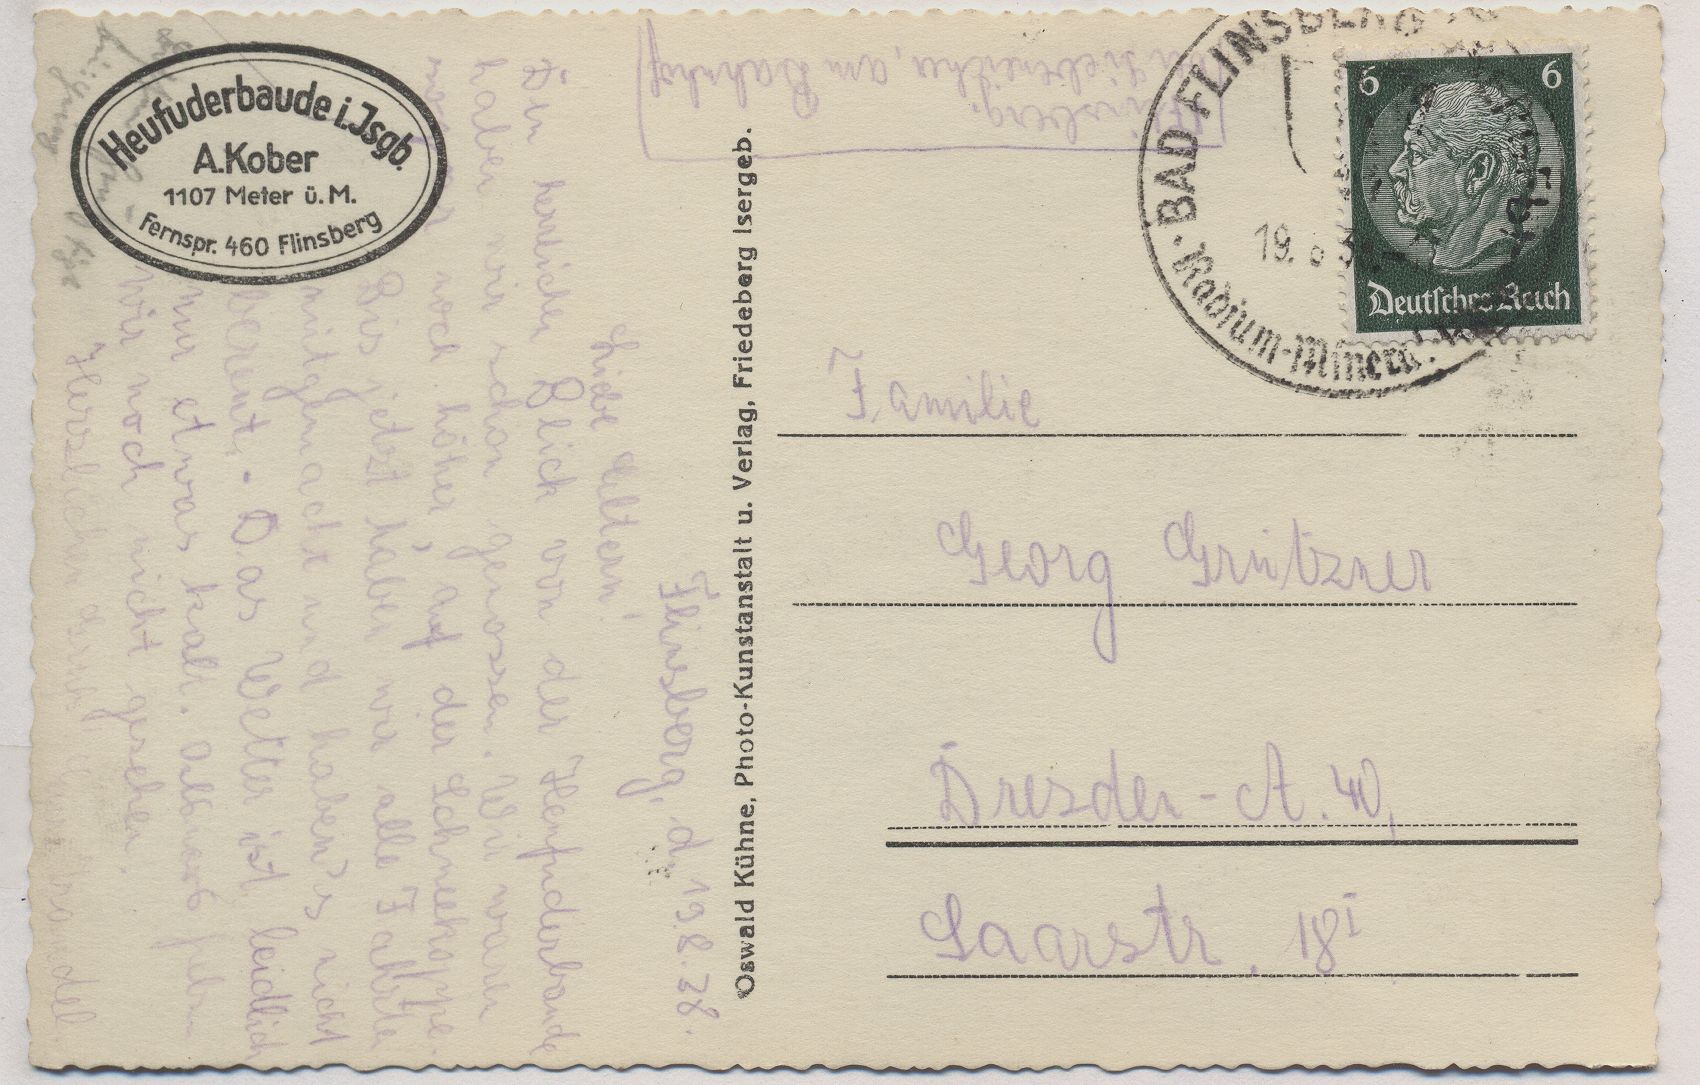 Heufuderbaude i. Jsgb.
A. Kober
1107 Meter ü. M.
Fernspr. 460 Flinsberg
Flinsberg, d. 19.8.38.
Liebe Eltern!
Den herrlichen Blick von der Heufuderbaude
haben wir schon genossen. Wir waren
noch höher, auf der Schneekoppe.
Bis jetzt haben wir alle Fahrten
mitgemacht und haben's nicht
bereut. - Das Wetter ist leidlich
nur etwas kalt.
wir noch nicht gesehen.
Herzlichen
Flinsberg.
am Bahnhof
Oswald Kühne, Photo-Kunstanstalt u. Verlag, Friedeberg Isergeb.
BAD FLINSBERG
19. 8. 3
Radium-Minera
6 6
Deutsches Reich
Familie
Georg Grützner
Dresden-A. 40,
Saarstr. 18 I